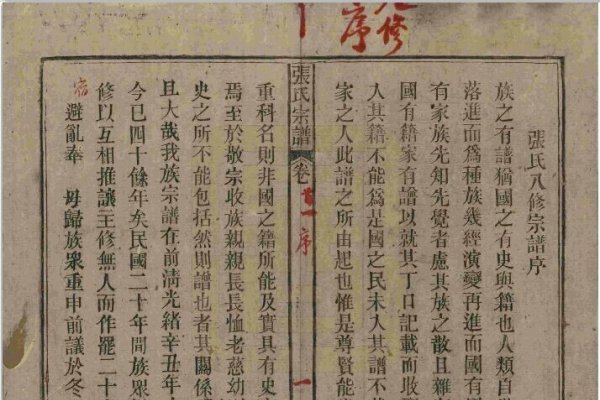 八修
序
張氏八修宗譜序
族之有譜猶國之有史與籍也人類自
落進而爲種族幾經演變再進而國有
有家族先知先覺者慮其族之散且雜
國有籍家有譜以就其丁口記載而收
入其籍不能爲是國之民未入其譜不
家之人此譜之所由起也惟是尊賢能
張氏宗譜
卷首
序
一
重科名則非國之籍所能及實具有史
焉至於敬宗收族親親長長恤老慈幼
史之所不能包括然則譜也者其關係
且大哉我族宗譜在前清光緒辛丑年
今已四十餘年矣民國二十年間族眾
修以互相推讓主修無人而作罷二十
避亂奉 母歸族眾重申前議於冬